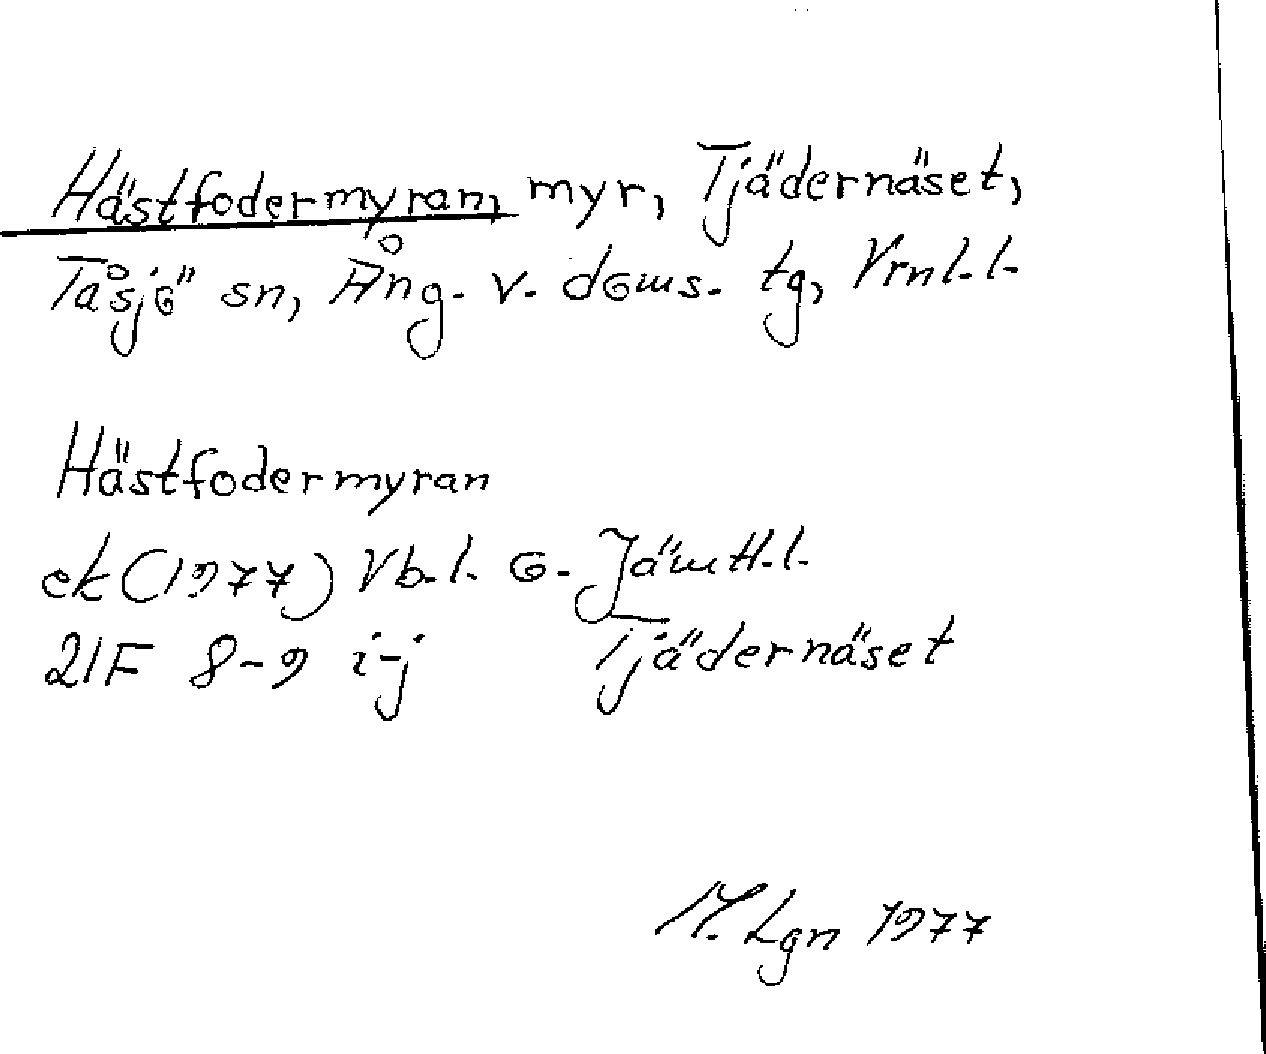 Hästfodermyran, myr, Tjädernäset,
Tåsjö sn, Ång. v. doms. tg, Vrnl. l.
Hästfodermyran
ek (1977) Vb. l. o. Jämtl. l.
21F 8-9 i-j Tjädernäset
M. Lgn 1977